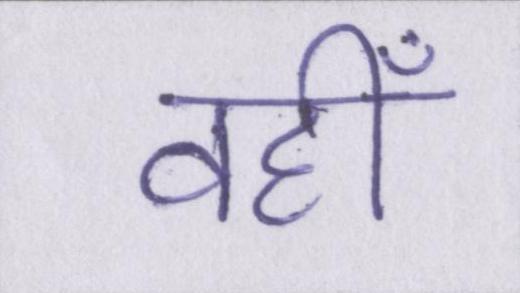 वहीँ